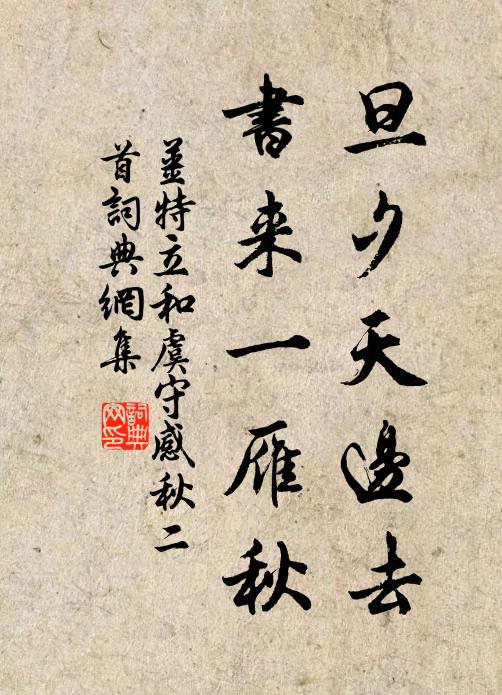 旦夕天邊去
書來一雁秋
姜特立和虞守感秋二
首詞典網集
詞典
网印